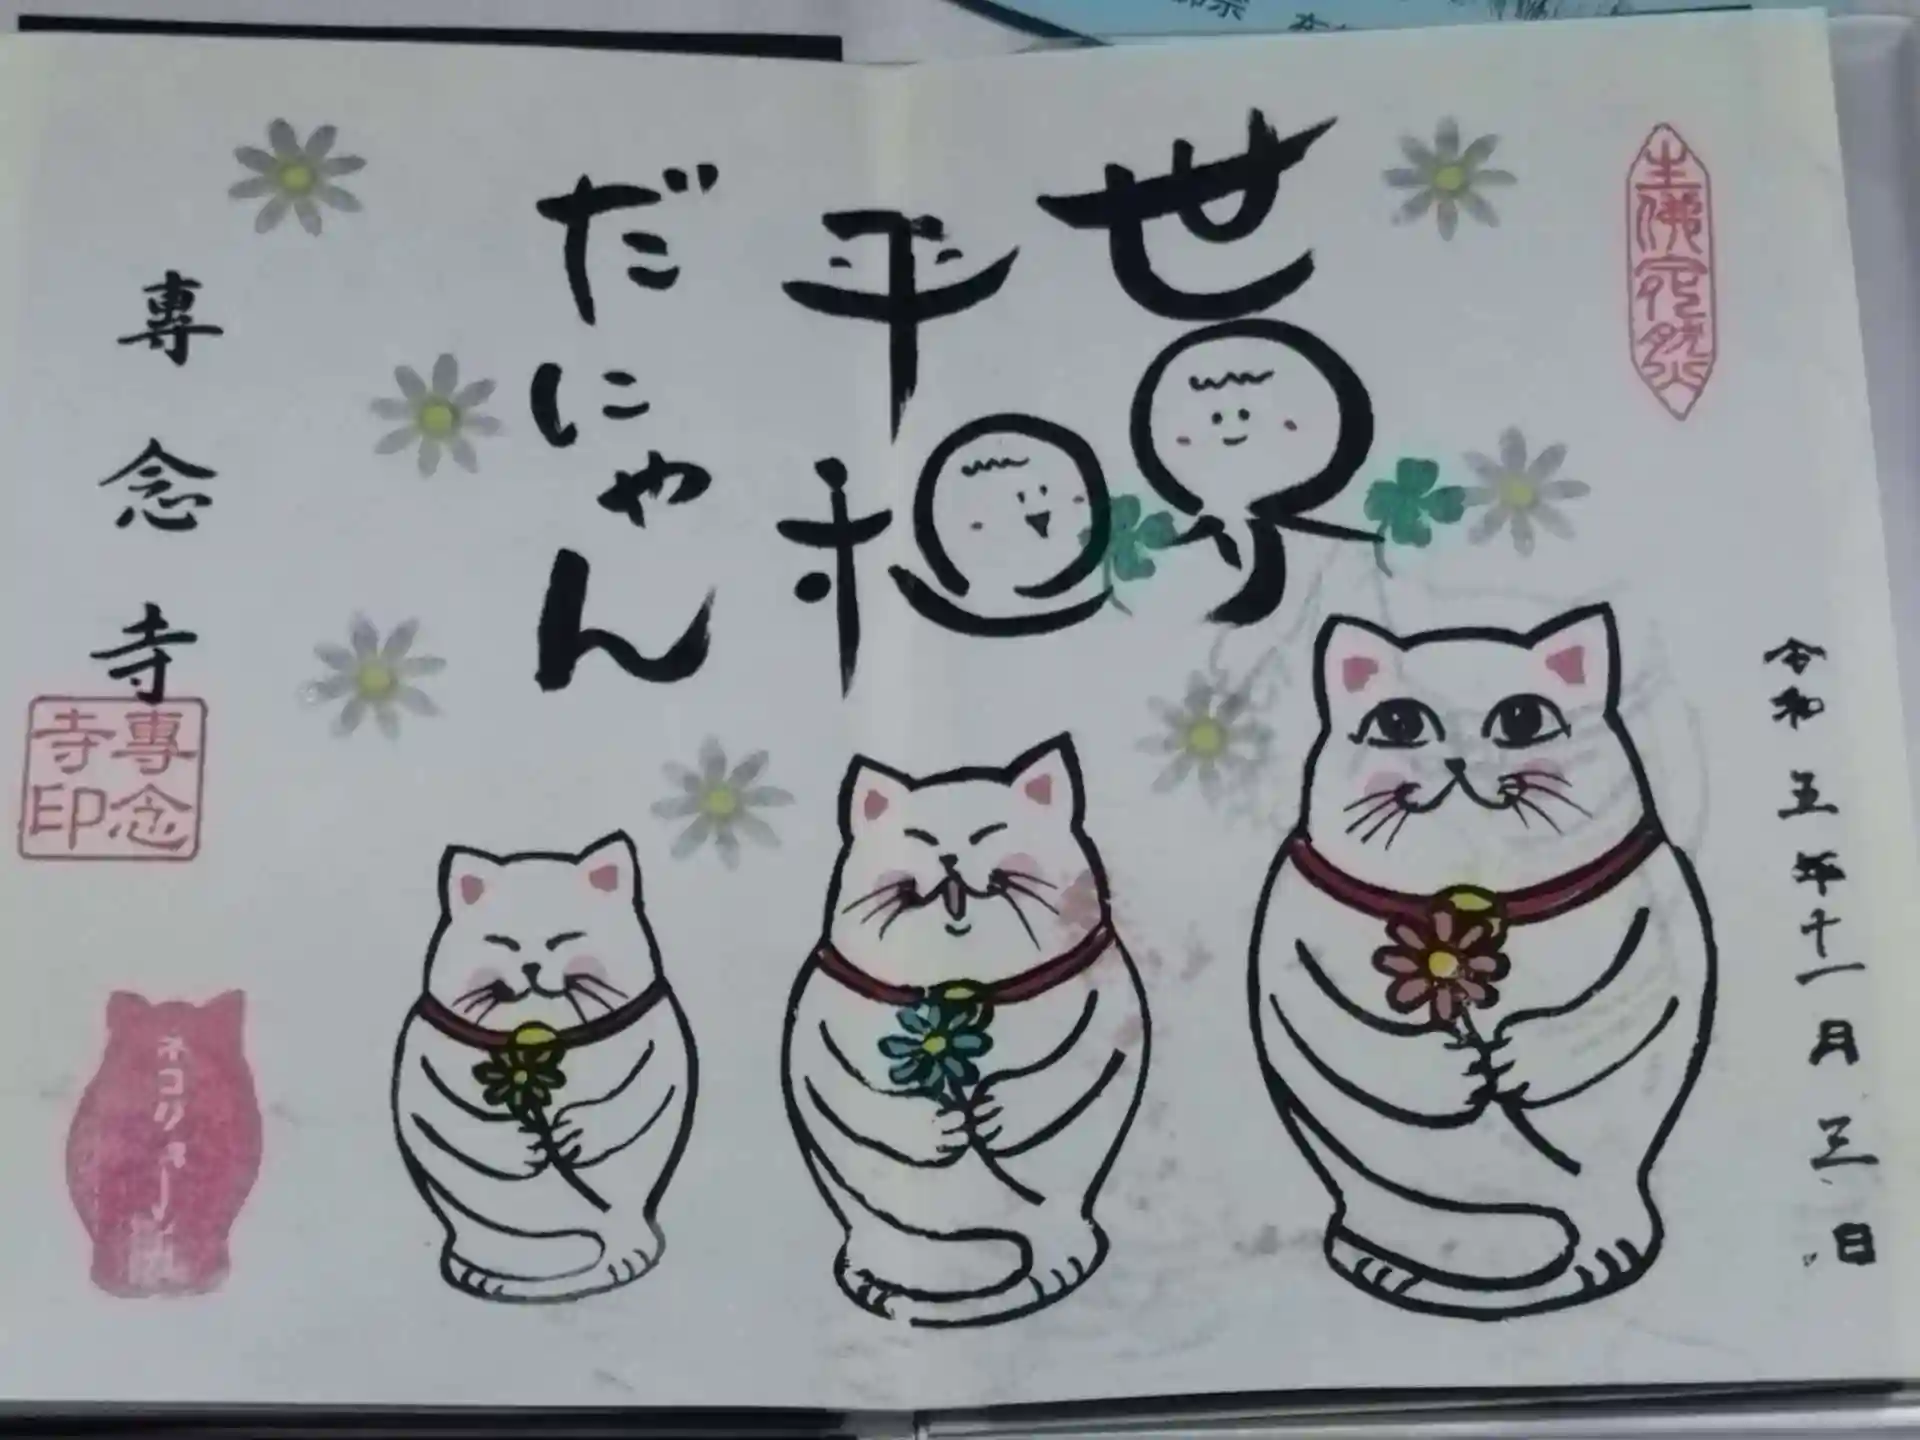 生佛宛然
令和五年十一月三日
世界
平和
だにゃん
專念寺
專念
寺印
ネコリョーシカ